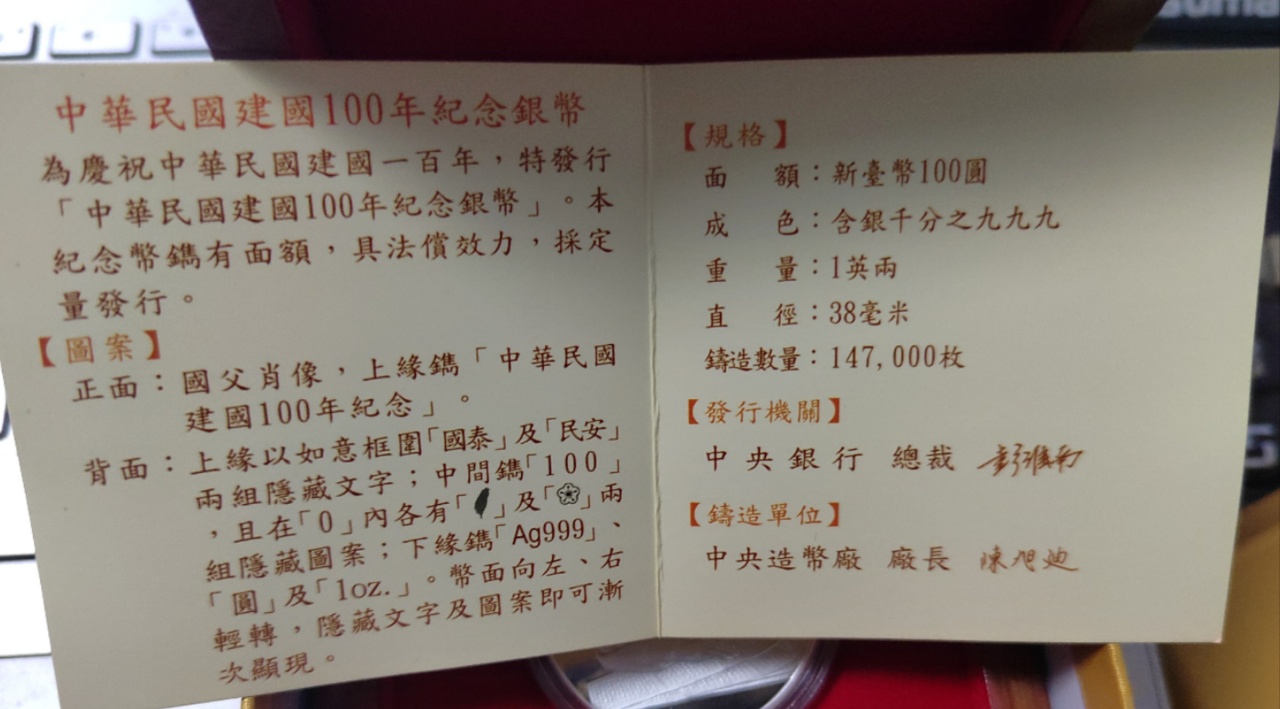 中華民國建國100年紀念銀幣
為慶祝中華民國建國一百年，特發行
「中華民國建國100年紀念銀幣」。本
紀念幣鐫有面額，具法償效力，採定
量發行。
【圖案】
正面：國父肖像，上緣鐫「中華民國
建國100年紀念」。
背面：上緣以如意框圍「國泰」及「民安」
兩組隱藏文字；中間鐫「100」
，且在「0」內各有「」及「」兩
組隱藏圖案；下緣鐫「Ag999」、
「圓」及「1oz.」。幣面向左、右
輕轉，隱藏文字及圖案即可漸
次顯現。
【規格】
面額：新臺幣100圓
成色：含銀千分之九九九
重量：1英兩
直徑：38毫米
鑄造數量：147,000枚
【發行機關】
中央銀行 總裁 彭淮南
【鑄造單位】
中央造幣廠 廠長